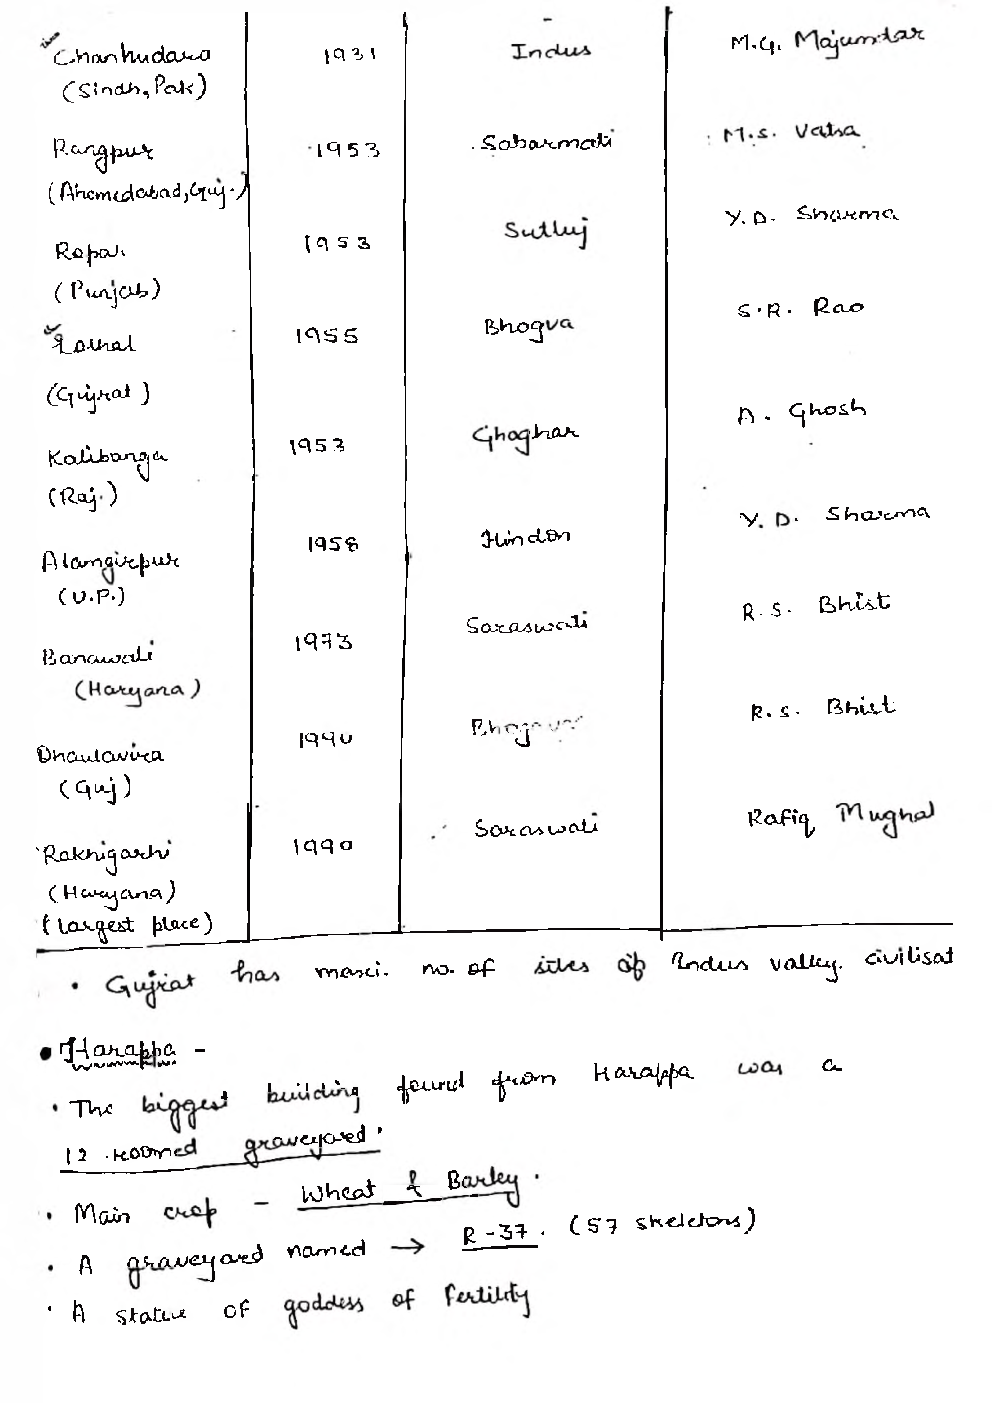 Chanhudaro 1931 Indus M.G. Majumdar
(Sindh, Pak)
Rangpur 1953 Sabarmati M.S. Vatsa
(Ahemedabad, Guj.)
Ropar 1953 Sutluj Y.D. Sharma
(Punjab)
Lothal 1955 Bhogva S.R. Rao
(Gujrat)
Kalibanga 1953 Ghoghar A. Ghosh
(Raj.)
Alamgirpur 1958 Hindon Y.D. Sharma
(U.P.)
Banawali 1973 Saraswati R.S. Bhist
(Haryana)
Dhaulavira 1990 R.S. Bhist
(Guj)
Rakhigarhi 1990 Saraswati Rafiq Mughal
(Haryana)
(largest place)
• Gujrat has maxi. no. of sites of Indus valley. civilisat
• Harappa -
• The biggest building found from Harappa was a
12 roomed graveyard.
• Main crop - Wheat & Barley.
• A graveyard named → R-37. (57 skeletons)
• A statue of goddess of fertility